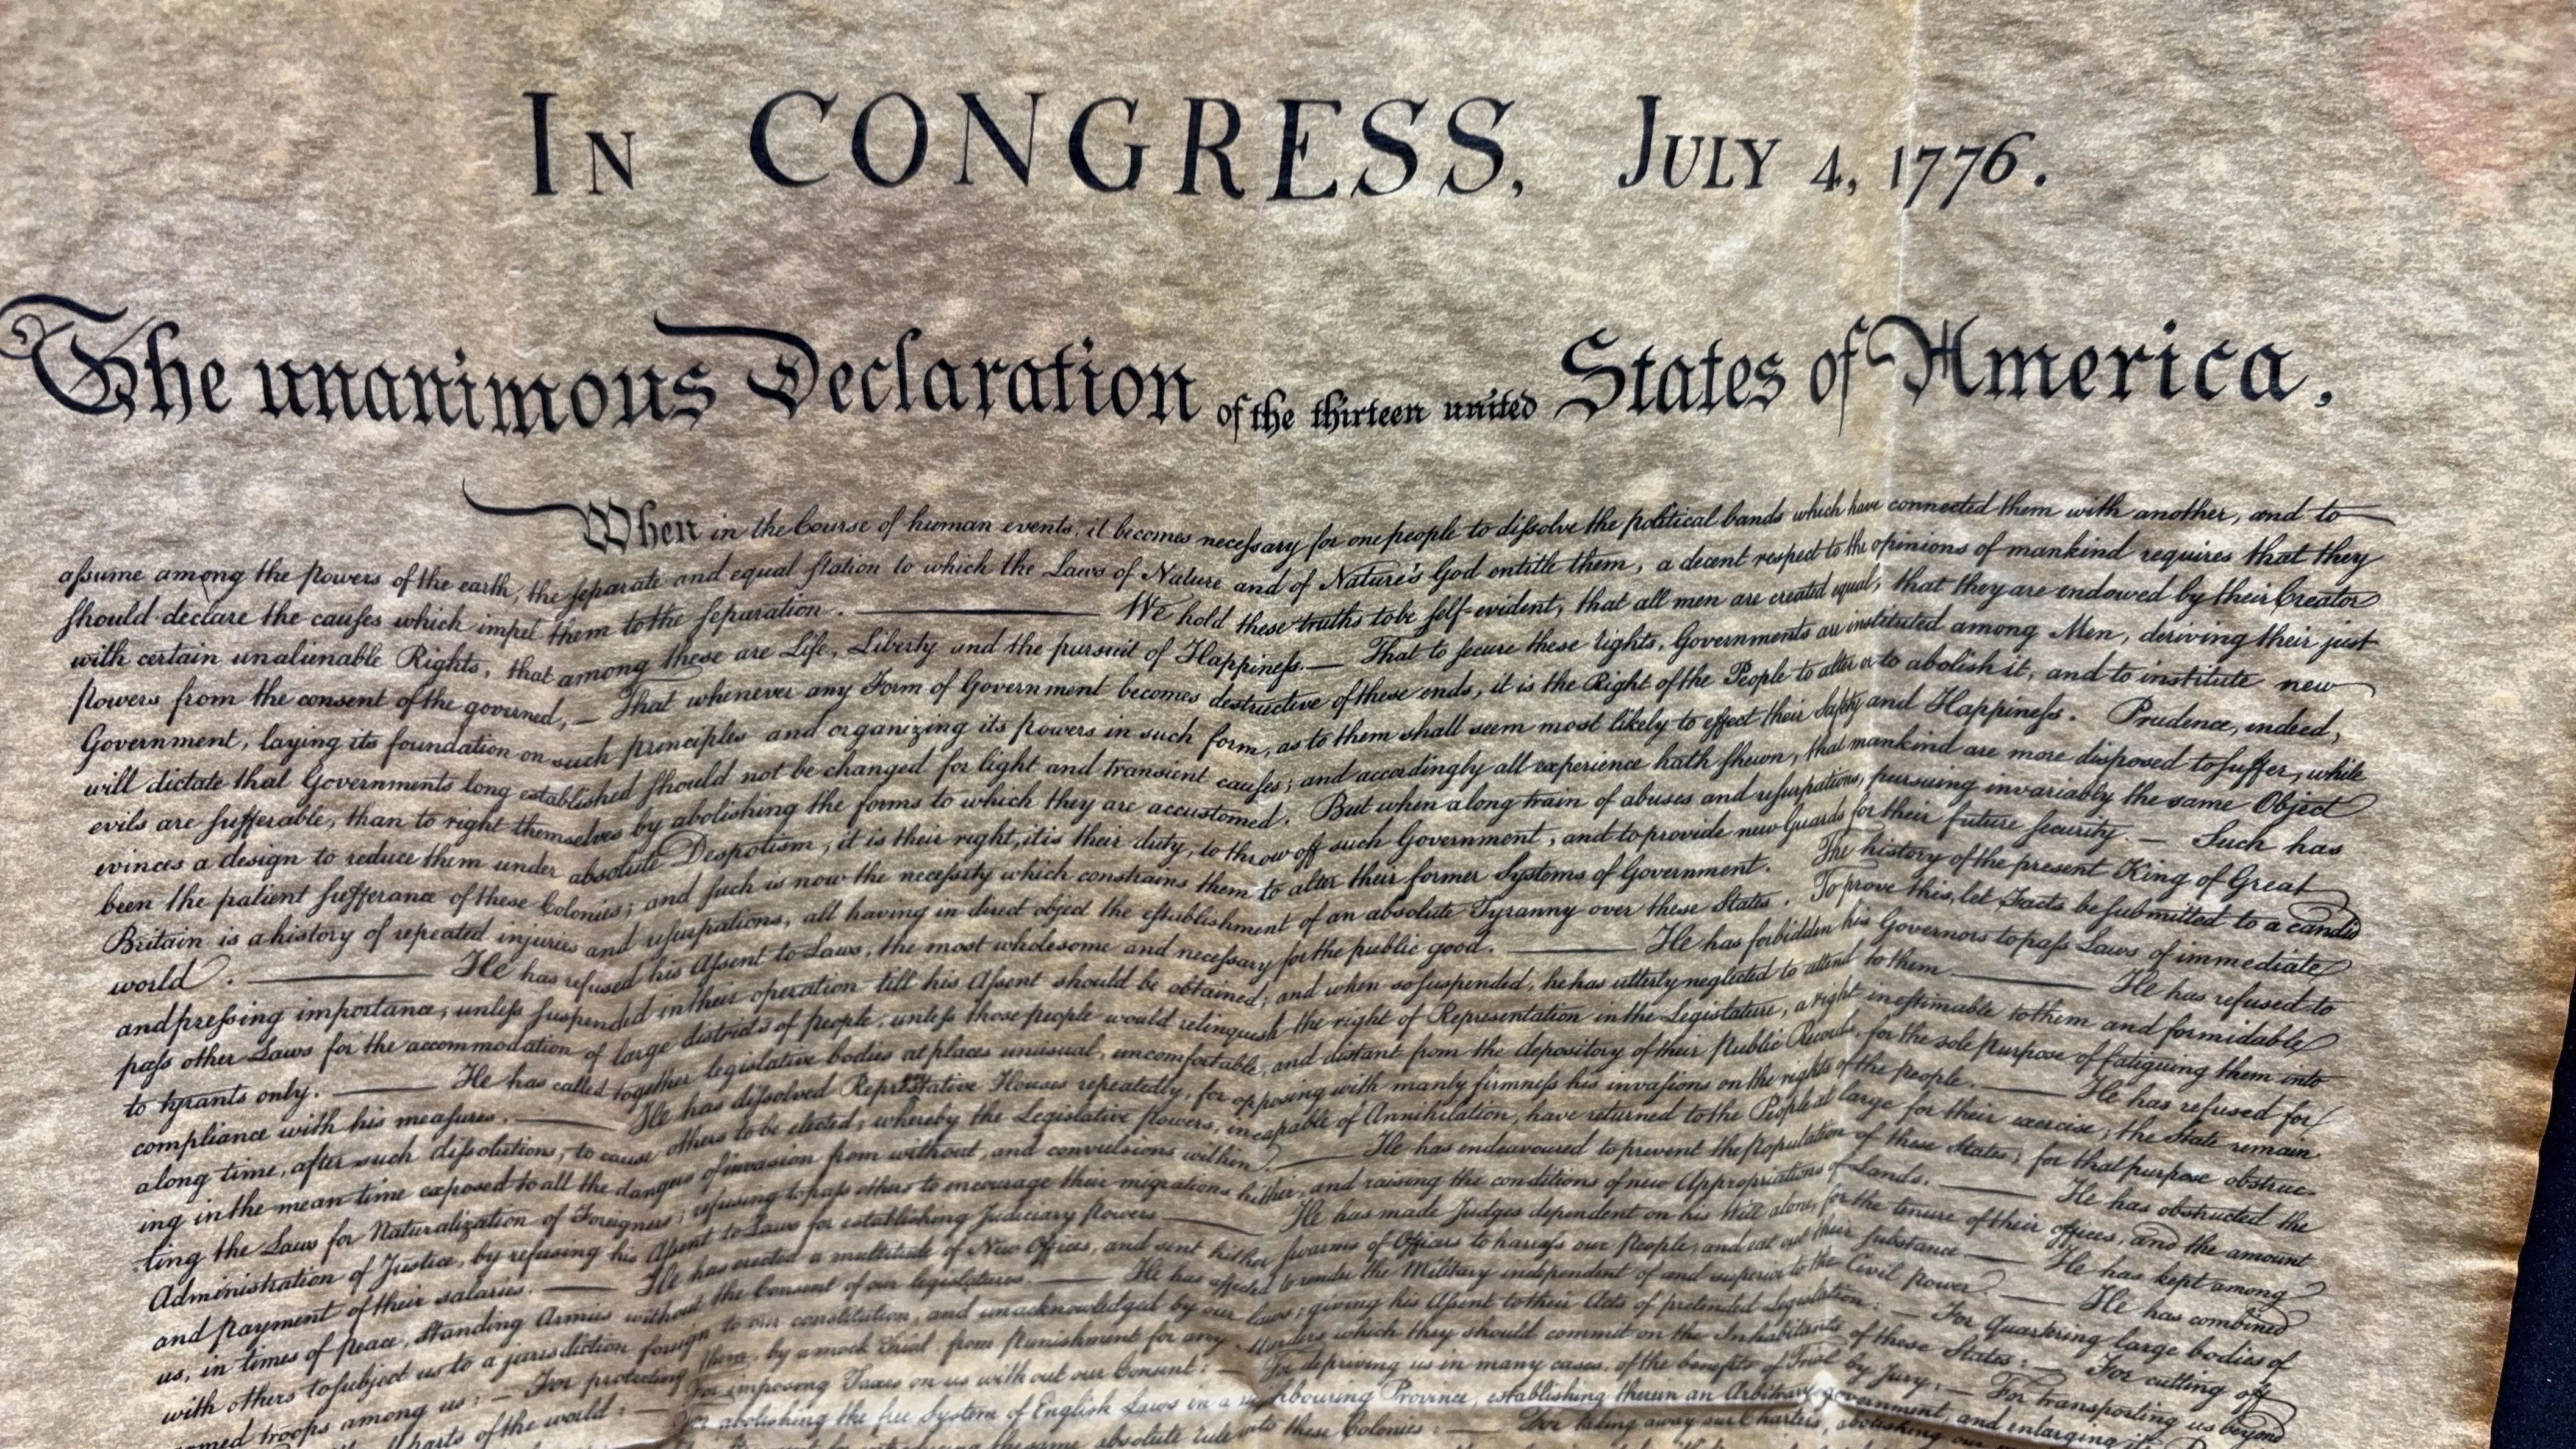 In CONGRESS, July 4, 1776.
The unanimous Declaration of the thirteen united States of America,
When in the Course of human events, it becomes necessary for one people to dissolve the political bands which have connected them with another, and to
assume among the powers of the earth, the separate and equal station to which the Laws of Nature and of Nature's God entitle them, a decent respect to the opinions of mankind requires that they
should declare the causes which impel them to the separation. — We hold these truths to be self-evident, that all men are created equal, that they are endowed by their Creator
with certain unalienable Rights, that among these are Life, Liberty and the pursuit of Happiness. — That to secure these rights, Governments are instituted among Men, deriving their just
powers from the consent of the governed, — That whenever any Form of Government becomes destructive of these ends, it is the Right of the People to alter or to abolish it, and to institute new
Government, laying its foundation on such principles and organizing its powers in such form, as to them shall seem most likely to effect their Safety and Happiness. Prudence, indeed,
will dictate that Governments long established should not be changed for light and transient causes; and accordingly all experience hath shewn, that mankind are more disposed to suffer, while
evils are sufferable, than to right themselves by abolishing the forms to which they are accustomed. But when a long train of abuses and usurpations, pursuing invariably the same Object
evinces a design to reduce them under absolute Despotism, it is their right, it is their duty, to throw off such Government, and to provide new Guards for their future security. — Such has
been the patient sufferance of these Colonies; and such is now the necessity which constrains them to alter their former Systems of Government. The history of the present King of Great
Britain is a history of repeated injuries and usurpations, all having in direct object the establishment of an absolute Tyranny over these States. To prove this, let Facts be submitted to a candid
world. — He has refused his Assent to Laws, the most wholesome and necessary for the public good. — He has forbidden his Governors to pass Laws of immediate
and pressing importance, unless suspended in their operation till his Assent should be obtained; and when so suspended, he has utterly neglected to attend to them — He has refused to
pass other Laws for the accommodation of large districts of people, unless those people would relinquish the right of Representation in the Legislature, a right inestimable to them and formidable
to tyrants only. — He has called together legislative bodies at places unusual, uncomfortable, and distant from the depository of their Public Records, for the sole purpose of fatiguing them into
compliance with his measures. — He has dissolved Representative Houses repeatedly, for opposing with manly firmness his invasions on the rights of the people. — He has refused for
a long time, after such dissolutions, to cause others to be elected; whereby the Legislative powers, incapable of Annihilation, have returned to the People at large for their exercise; the State remain
ing in the mean time exposed to all the dangers of invasion from without, and convulsions within. — He has endeavoured to prevent the population of these States; for that purpose obstruc-
ting the Laws for Naturalization of Foreigners; refusing to pass others to encourage their migrations hither, and raising the conditions of new Appropriations of Lands. — He has obstructed the
Administration of Justice, by refusing his Assent to Laws for establishing Judiciary powers — He has made Judges dependent on his Will alone, for the tenure of their offices, and the amount
and payment of their salaries. — He has erected a multitude of New Offices, and sent hither swarms of Officers to harrass our People, and eat out their substance. — He has kept among
us, in times of peace, Standing Armies without the Consent of our legislatures. — He has affected to render the Military independent of and superior to the Civil power. — He has combined
with others to subject us to a jurisdiction foreign to our constitution, and unacknowledged by our laws; giving his Assent to their Acts of pretended Legislation: — For quartering large bodies of
armed troops among us: — For protecting them, by a mock Trial from punishment for any Murders which they should commit on the Inhabitants of these States: — For cutting off
parts of the world: — For imposing Taxes on us without our Consent: — For depriving us in many cases, of the benefits of Trial by Jury: — For transporting us beyond
For abolishing the free System of English Laws in a neighbouring Province, establishing therein an Arbitrary government, and enlarging its
the same absolute rule into these Colonies: — For taking away our Charters, abolishing our